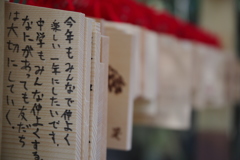 今年もみんなで仲よく
楽しい一年にしたいです。
中学もみんな仲よくする。
なにがあっても友だち
は大切にしていく。